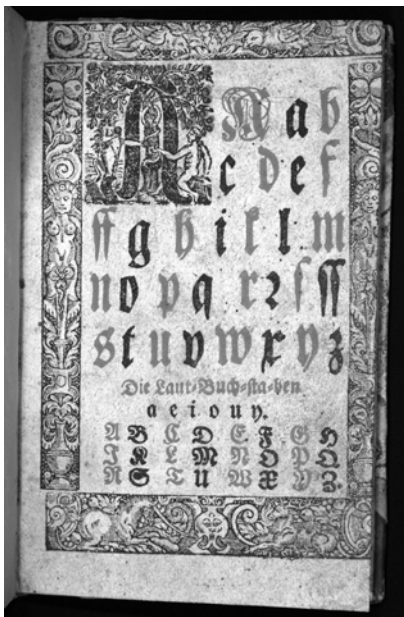 A A a b
c d e f
ff g h i k l m
n o p q r ꝛ ſ ſſ
s t u v w x y z
Die Laut⸗Buch⸗ſta⸗ben
a e i o u y.
A B C D E F G H
J K L M N O P Q
R S T U W X Y Z.